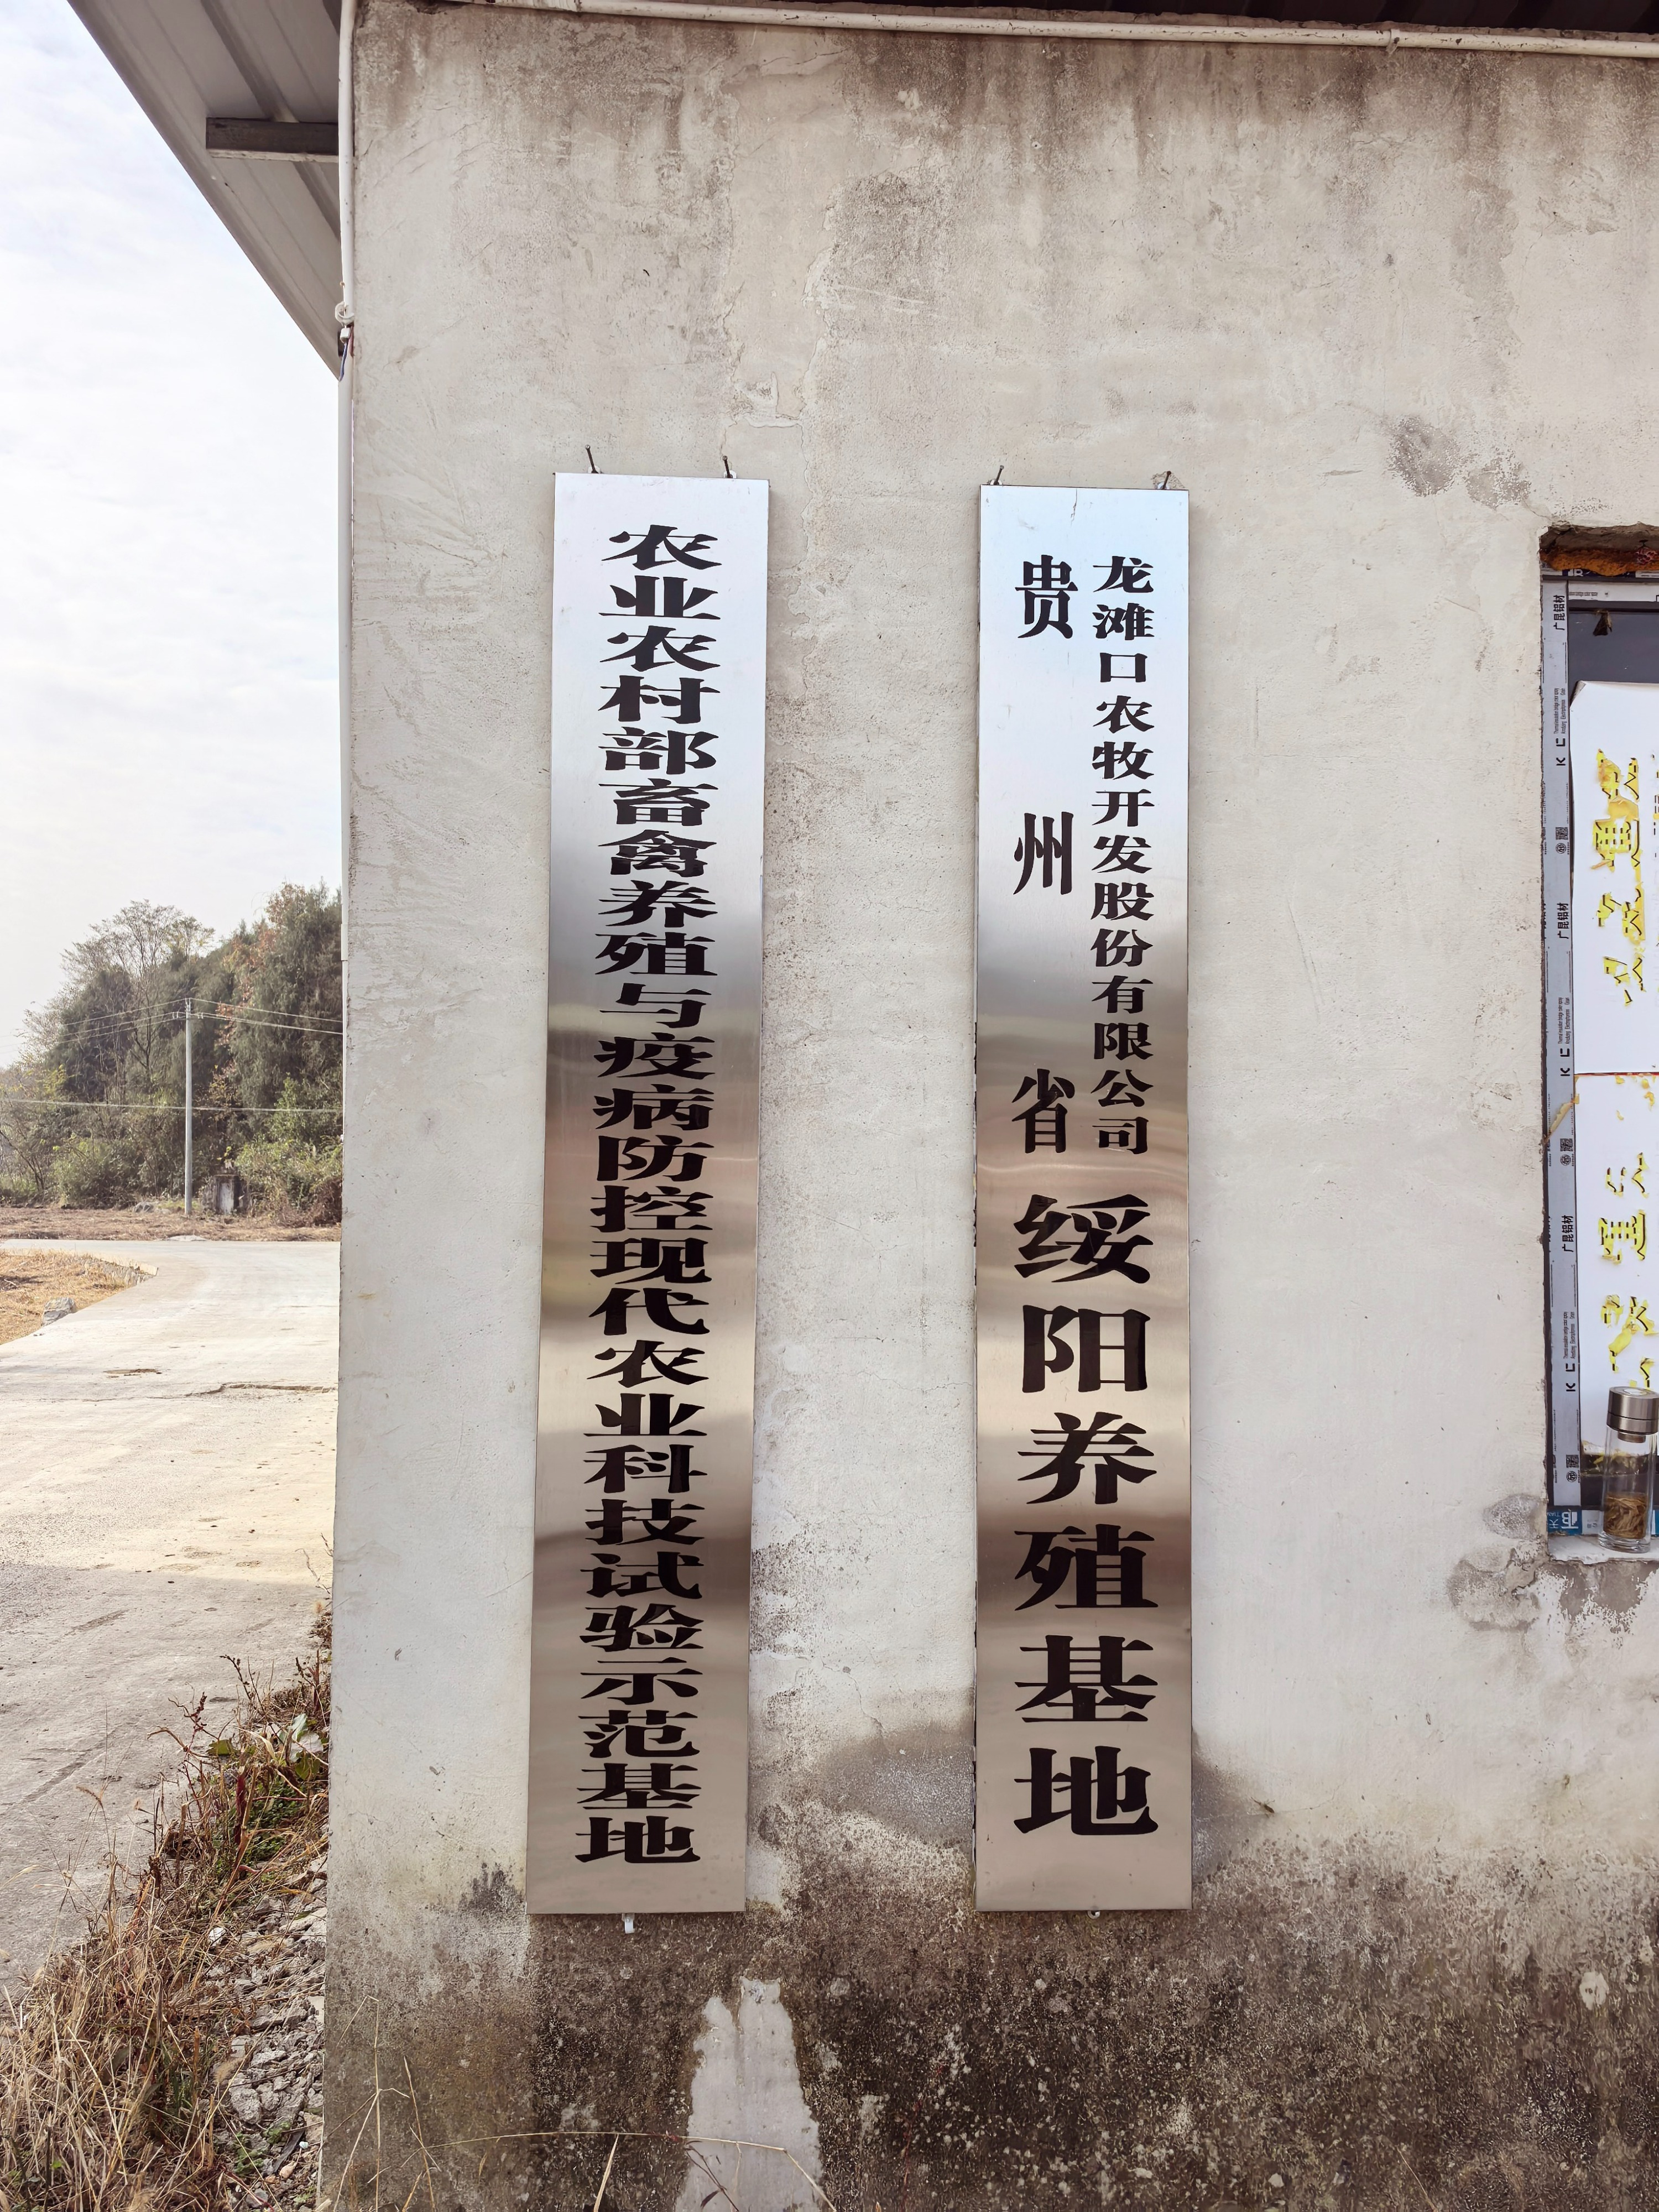 农业农村部畜禽养殖与疫病防控现代农业科技试验示范基地
龙滩口农牧开发股份有限公司
贵州省
绥阳养殖基地
广昆铝材
广昆铝材
广昆铝材
广昆铝材